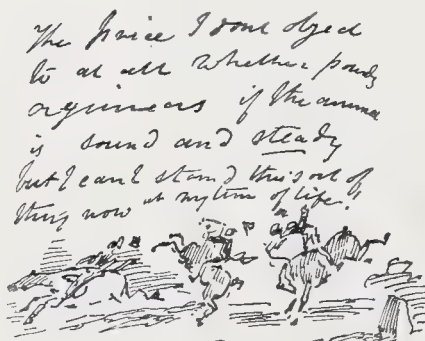 The price I dont object
to at all whether pounds
or guineas if the animal
is sound and steady
but I can't stand this sort of
thing now at my time of life!!